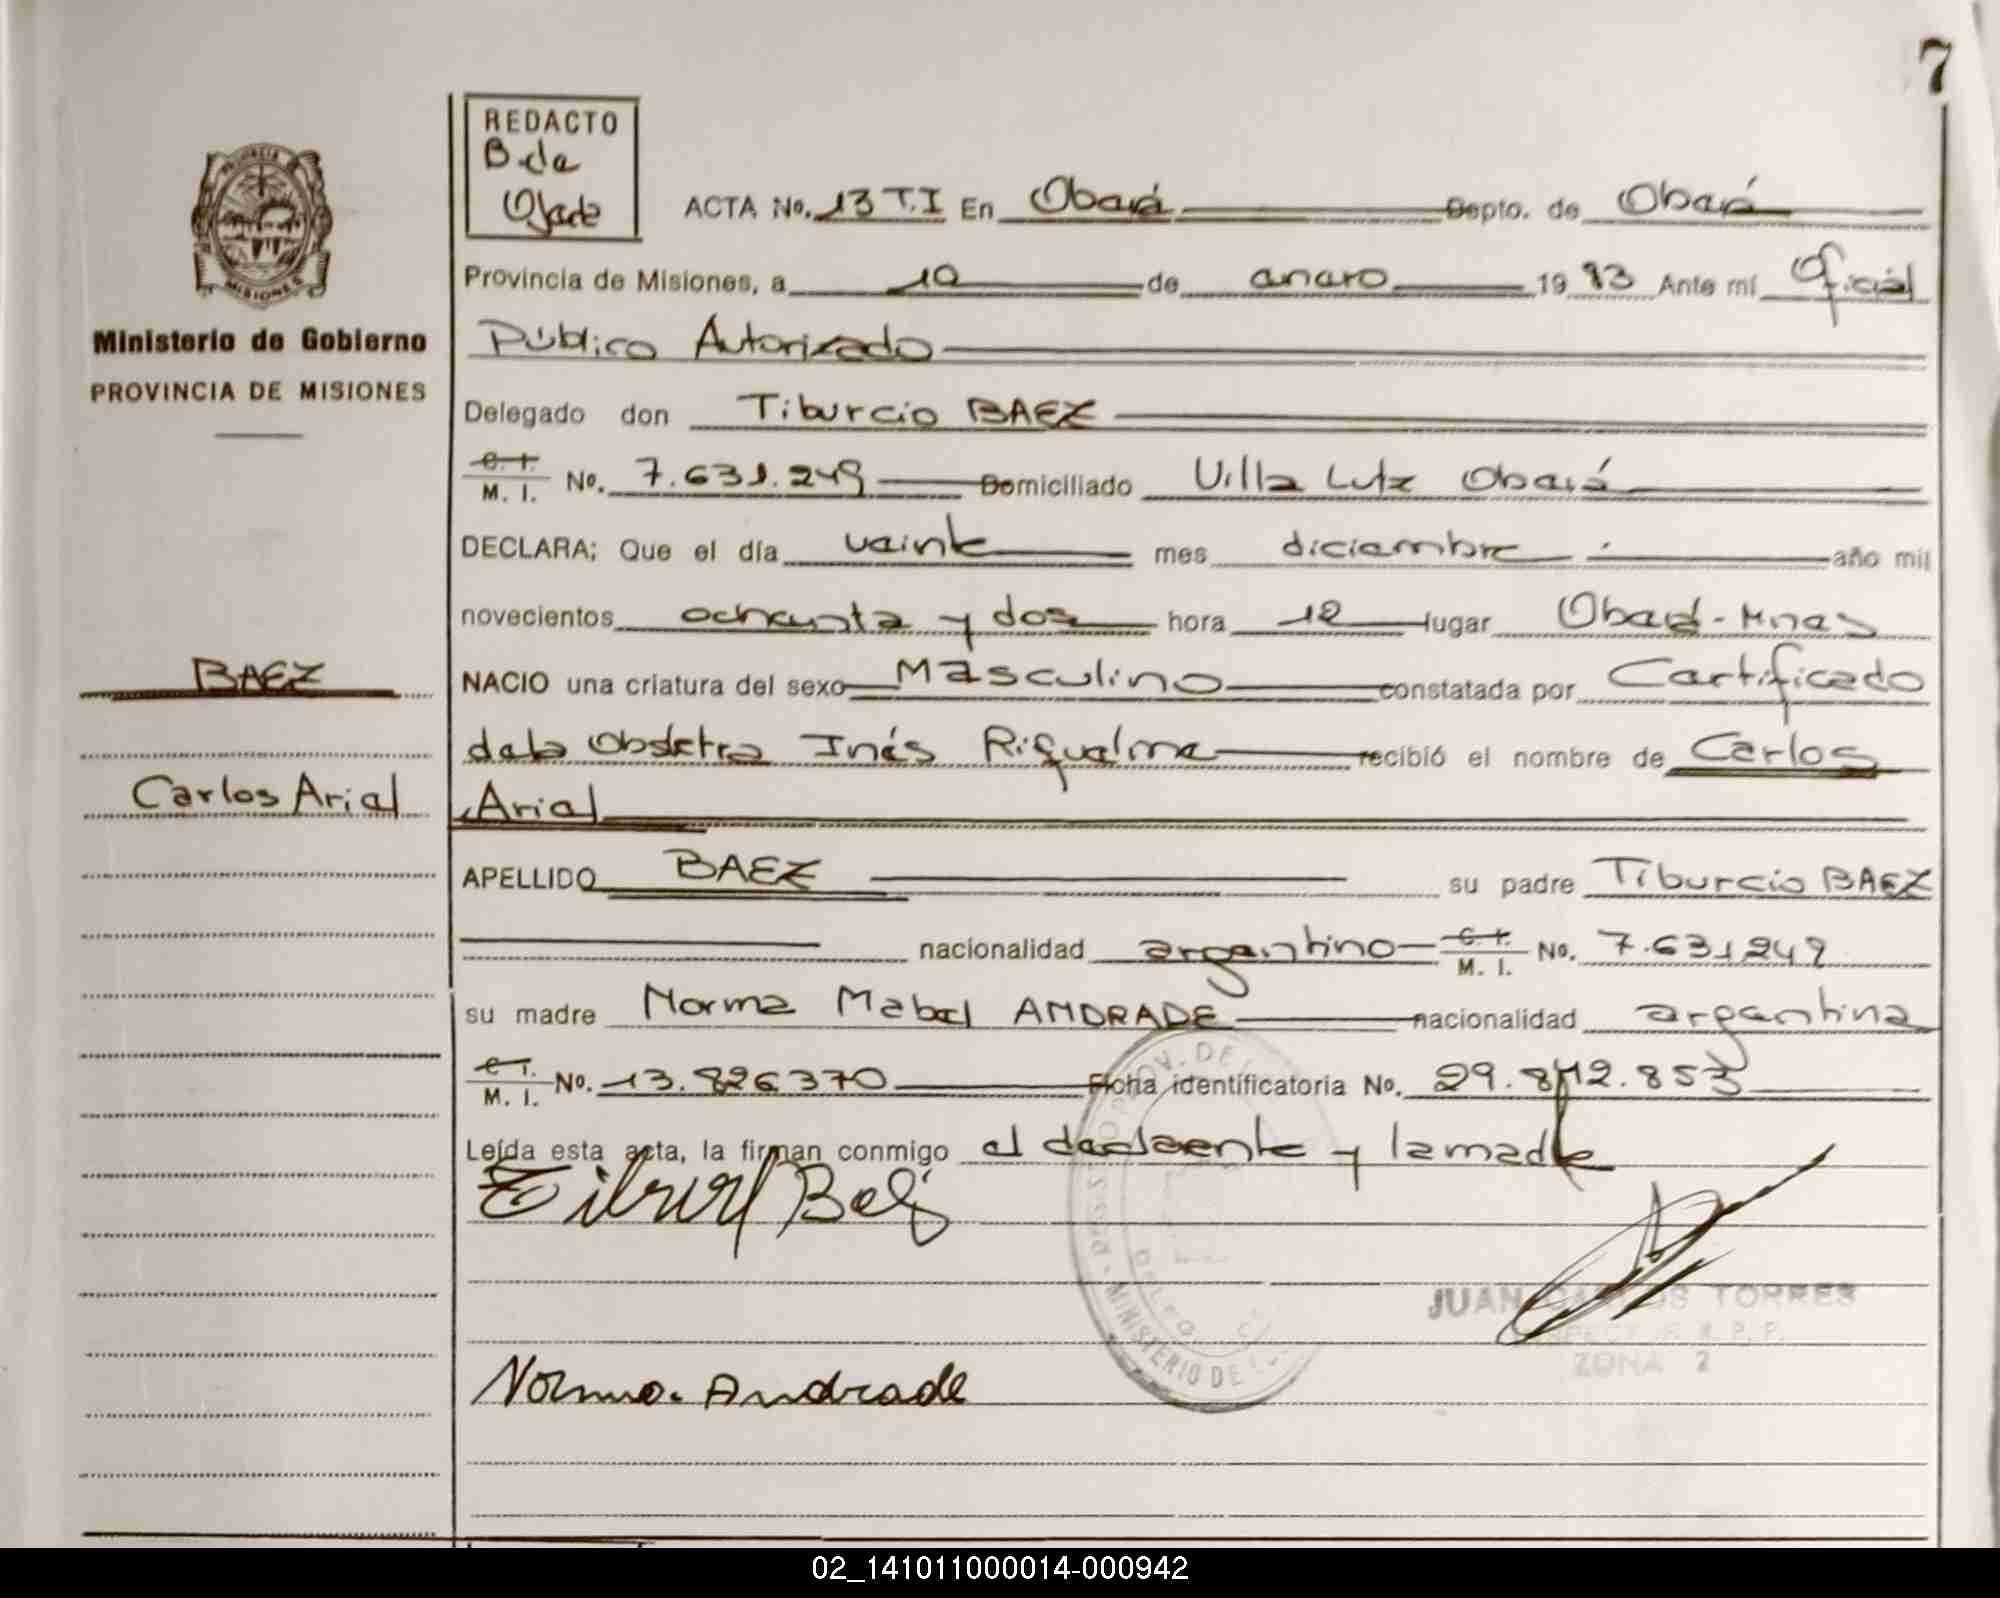 7
REDACTO
B. de
Ojeda
ACTA No. 13 T.I En Oberá Depto. de Oberá
Provincia de Misiones, a 10 de enero 1983 Ante mí Oficial
Público Autorizado
Delegado don Tiburcio BAEZ
C. I.
M. I. No. 7.631.249 Domiciliado Villa Lutz Oberá
DECLARA; Que el día veinte mes diciembre año mil
novecientos ochenta y dos hora 12 lugar Oberá-Mnes
NACIO una criatura del sexo Masculino constatada por Certificado
de la Obstetra Inés Riquelme recibió el nombre de Carlos
Ariel
APELLIDO BAEZ su padre Tiburcio BAEZ
nacionalidad argentino C. I. M. I. No. 7.631249
su madre Norma Mabel ANDRADE nacionalidad argentina
C. I.
M. I. No. 13.826.370 Ficha identificatoria No. 29.842.853
Leída esta acta, la firman conmigo el declarente y la madre
Norma. Andrade
JUAN CARLOS TORRES
ZONA 2
PROVINCIA DE MISIONES
Ministerio de Gobierno
PROVINCIA DE MISIONES
BAEZ
Carlos Ariel
02_141011000014-000942